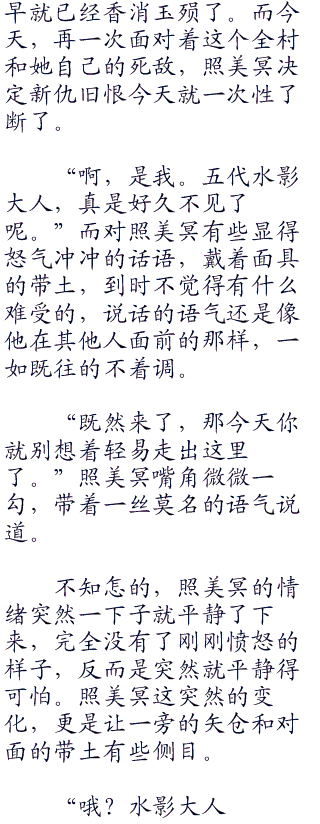 早就已经香消玉殒了。而今
天，再一次面对着这个全村
和她自己的死敌，照美冥决
定新仇旧恨今天就一次性了
断了。
“啊，是我。五代水影
大人，真是好久不见了
呢。”而对照美冥有些显得
怒气冲冲的话语，戴着面具
的带土，到时不觉得有什么
难受的，说话的语气还是像
他在其他人面前的那样，一
如既往的不着调。
“既然来了，那今天你
就别想着轻易走出这里
了。”照美冥嘴角微微一
勾，带着一丝莫名的语气说
道。
不知怎的，照美冥的情
绪突然一下子就平静了下
来，完全没有了刚刚愤怒的
样子，反而是突然就平静得
可怕。照美冥这突然的变
化，更是让一旁的矢仓和对
面的带土有些侧目。
“哦？水影大人